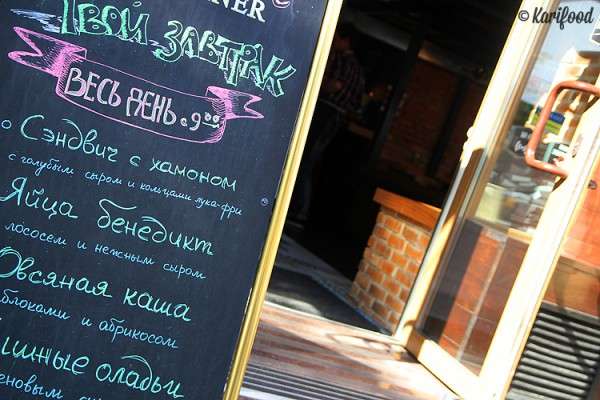 © Karifood
NER
Твой завтрак
весь день с 9 00
Сэндвич с хамоном
с голубым сыром и кольцами лука-фри
Яйца бенедикт
лососем и нежным сыром
Овсяная каша
блоками и абрикосом
шные оладьи